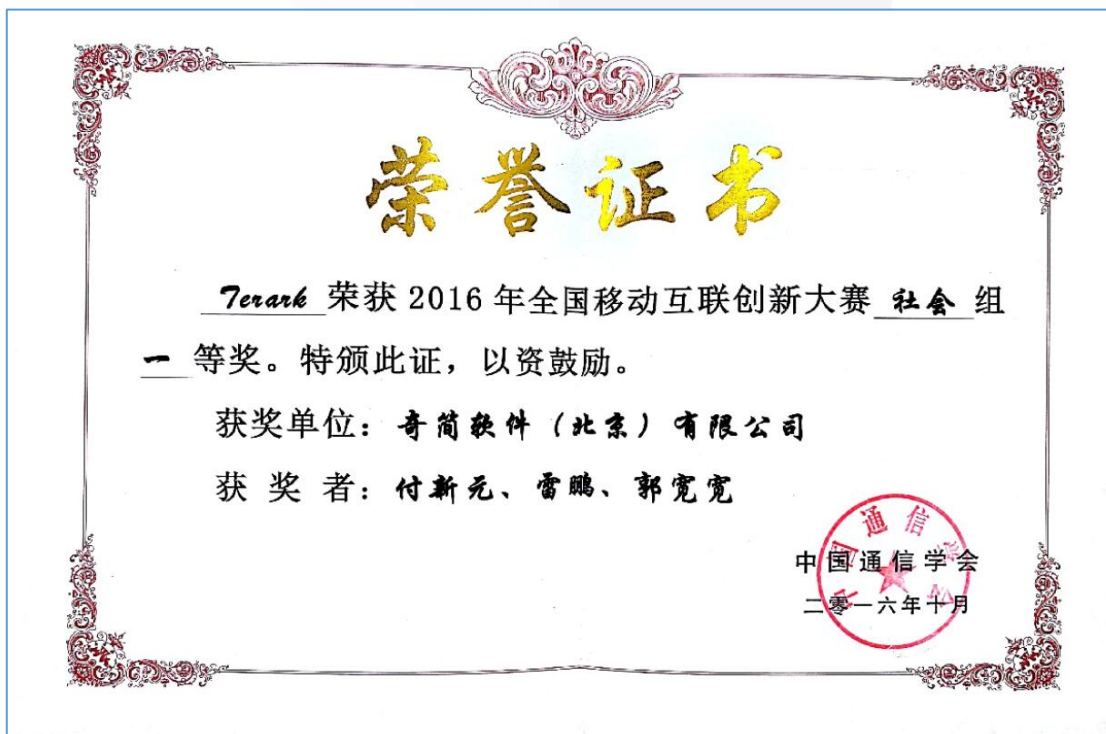 荣誉证书
Terark 荣获 2016 年全国移动互联创新大赛 社会 组
一 等奖。特颁此证，以资鼓励。
获奖单位：奇简软件（北京）有限公司
获 奖 者：付新元、雷鹏、郭宽宽
中国通信学会
中国通信学会
二零一六年十月